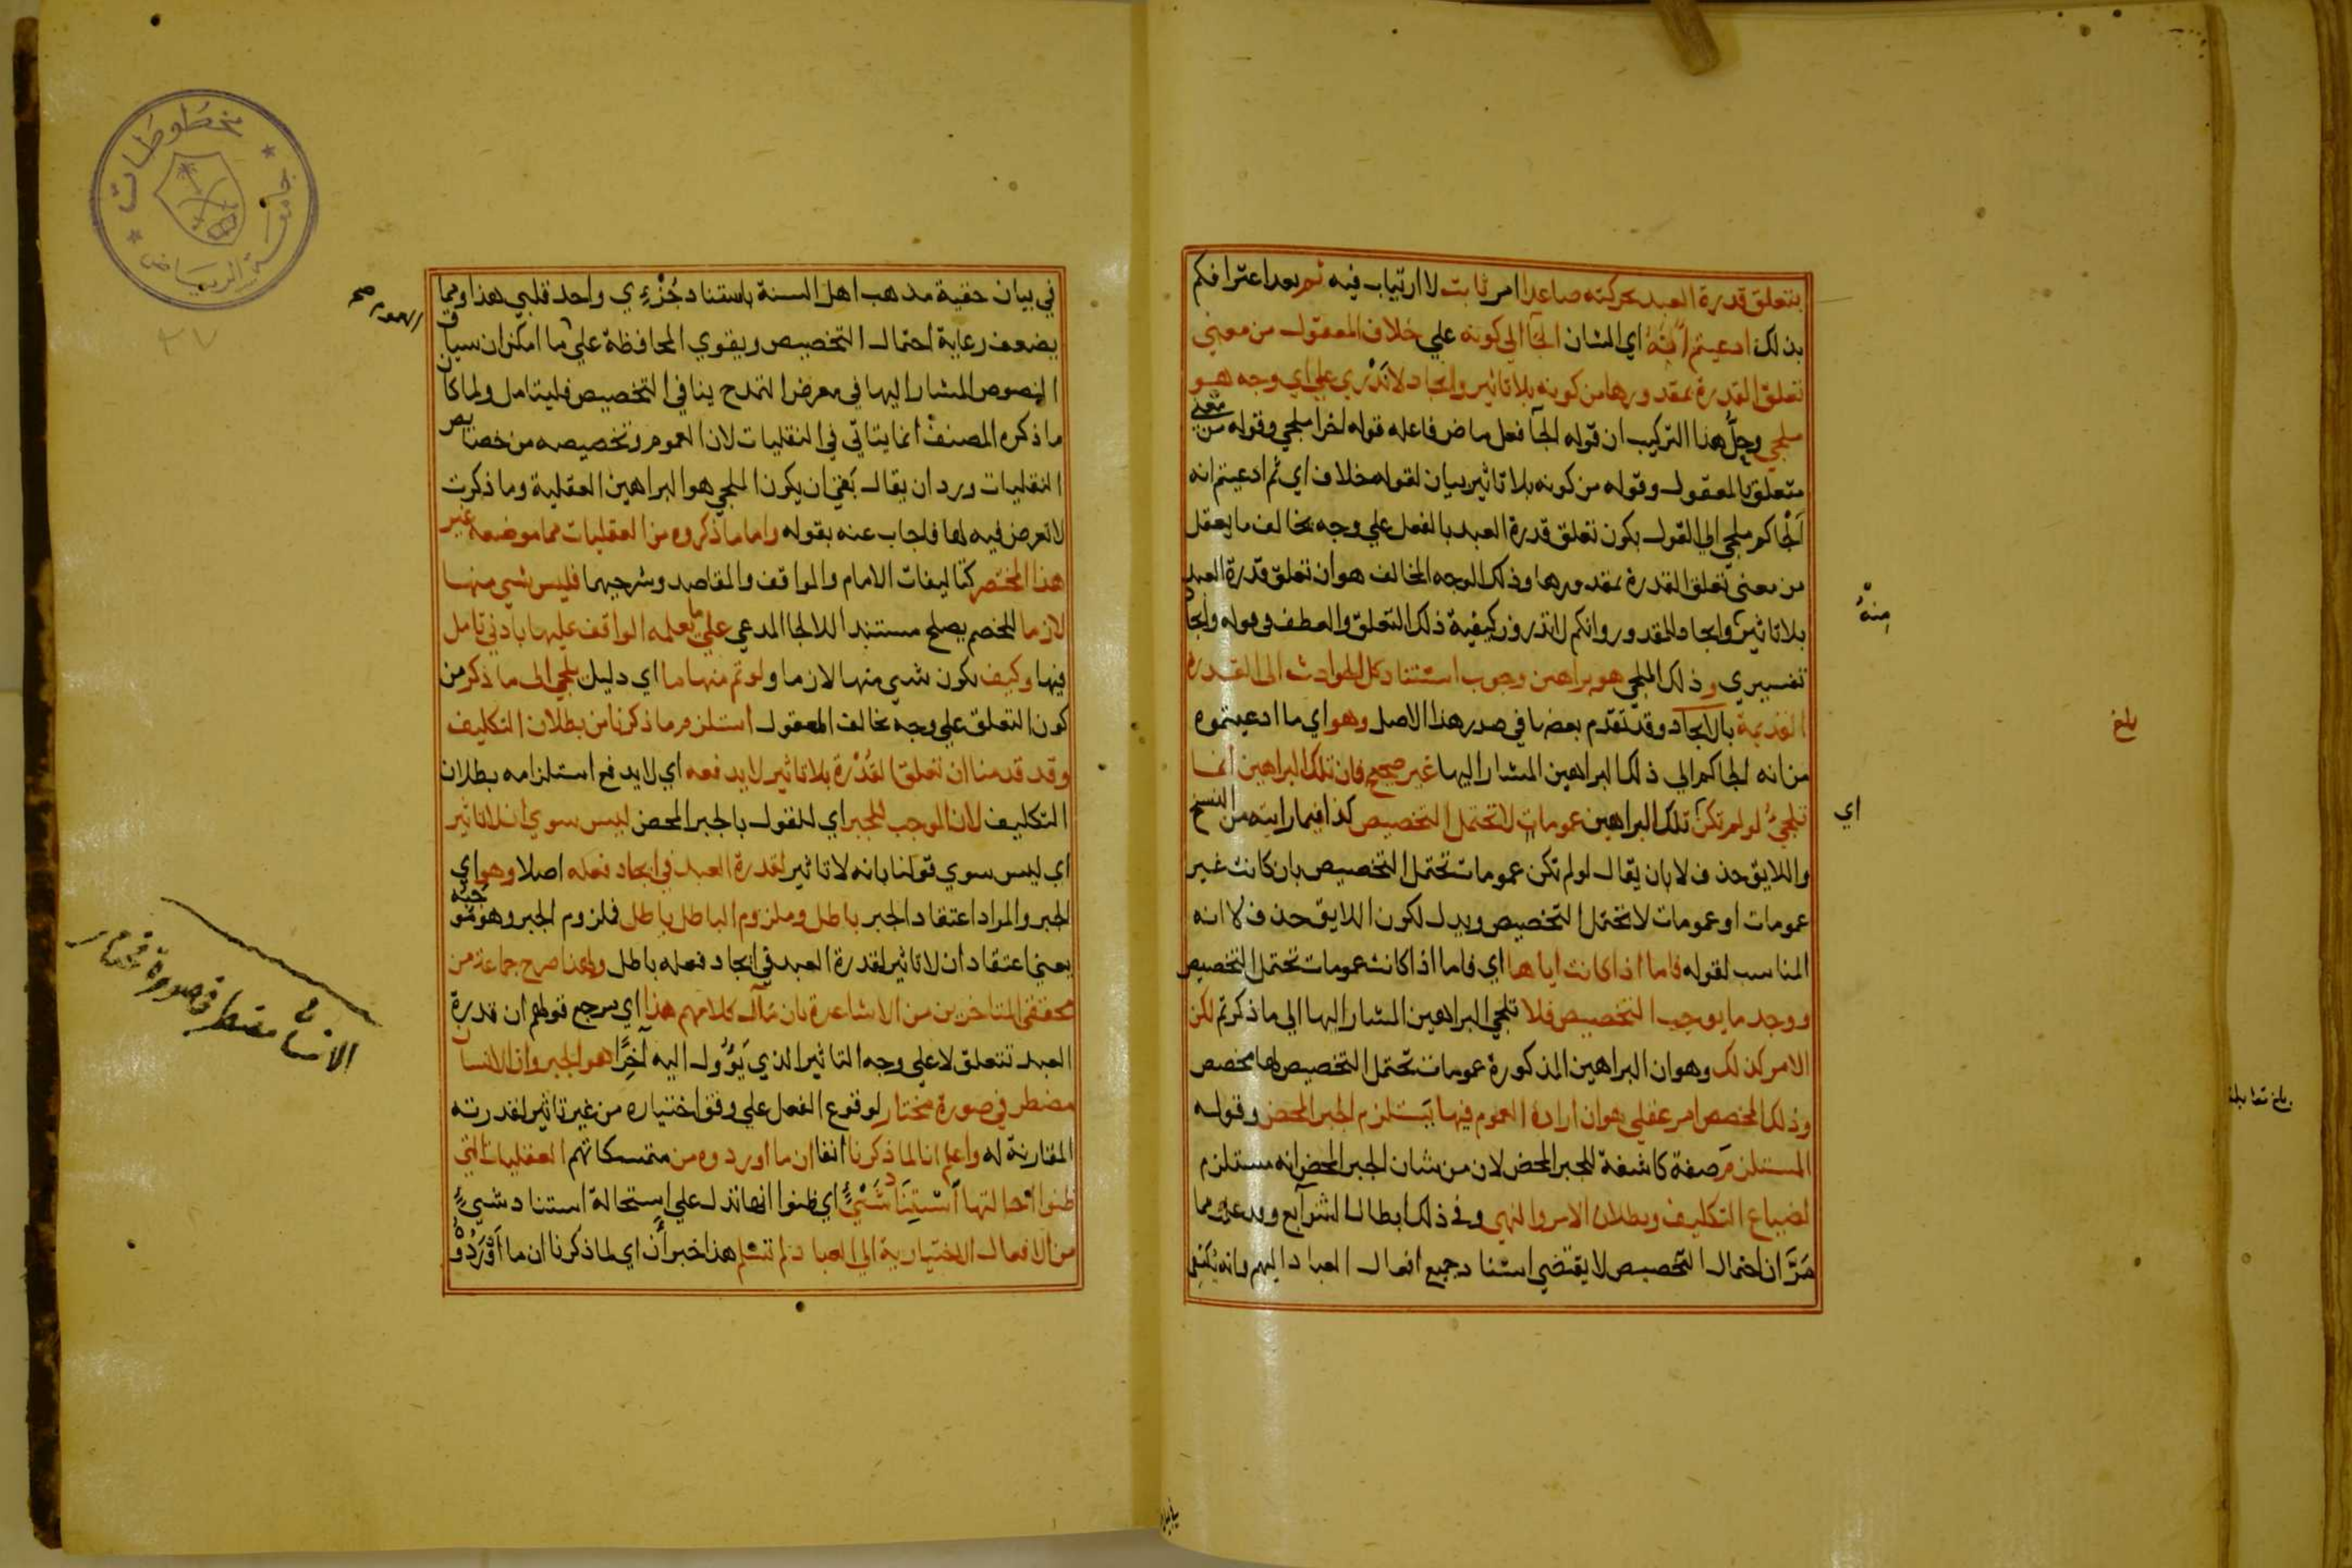 بتعلق قدرة العبد بحركته صاعدا امر ثابت لا ارتياب فيه ثم بعد اعترافكم
بذلك ادعيتم انه اي الشان الجآ الي كونه علي خلاف المعقول من معني
تعلق القدرة بمقدورها من كونه بلا تاثير وايجاد لا ندري علي اي وجه هو
ملجي وحل هذا التركيب ان قوله الجآ فعل ماض فاعله قوله اخرا ملجي وقوله من معني
متعلق بالمعقول وقوله من كونه بلا تاثير بيان لقوله خلاف اي ثم ادعيتم انه
الجاكم ملجي الي القول بكون تعلق قدرة العبد بالفعل علي وجه يخالف ما يعقل
من معني تعلق القدرة بمقدورها وذلك الوجه المخالف هو ان تعلق قدرة العبد
بلا تاثير وايجاد للمقدور وانكم لا تدرون كيفية ذلك التعلق والعطف في قوله وايجاد
منه
تفسيري وذلك الملجي هو براهين وجوب استناد كل الحوادث الى القدرة
القديمة بالايجاد وقد تقدم بعضها في صدر هذا الاصل وهو اي ما ادعيتموه
بلغ
من انه الجاكم الي ذلك البراهين المشار اليها غير صحيح فان تلك البراهين انما
تلجئ لو لم تكن تلك البراهين عمومات لا تحتمل التخصيص كذا فيما رايته من النسخ
اي
واللايق حذف لا بان يقال لو لم تكن عمومات تحتمل التخصيص بان كانت غير
عمومات او عمومات لا تحتمل التخصيص ويدل لكون اللايق حذف لا انه
المناسب لقوله فاما اذا كانت اياها اي فاما اذا كانت عمومات تحتمل التخصيص
ووجد ما يوجب التخصيص فلا تلجي البراهين المشار اليها الي ما ذكرتم لكن
الامر كذلك وهو ان البراهين المذكورة عمومات تحتمل التخصيص لها مخصص
وذلك المخصص امر عقلي هو ان ارادة العموم فيها يستلزم الجبر المحض وقوله
المستلزم صفة كاشفة للجبر المحض لان من شان الجبر المحض انه مستلزم
لضياع التكليف وبطلان الامر والنهي وفي ذلك ابطال الشرآيع وقد علم مما
مر ان احتمال التخصيص لا يقتضي استناد جميع افعال العباد اليهم وانه يكفي
في بيان حقية مذهب اهل السنة باستناد جزءي واحد قلبي هذا ومما
يضعف رعاية احتمال التخصيص ويقوي المحافظة علي ما امكن ان سياق
النصوص المشار اليها في معرض التمدح ينافي التخصيص فليتامل ولما كان
ما ذكره المصنف انما يتاتي في النقليات لان العموم وتخصيصه من خصايص
النقليات ورد ان يقال بقي ان يكون الملجي هو البراهين العقلية وما ذكرت
لا تعرض فيه لها فاجاب عنه بقوله واما ما ذكروه من العقليات مما موضعه غير
هذا المختصر كتاليفات الامام والمواقف والمقاصد وشرحيهما فليس شي منها
لازما للخصم يصلح مستندا للالجا المدعي علي ما يعلمه الواقف عليها بادني تامل
فيها وكيف يكون شي منها لازما ولو تم منها ما اي دليل يلجي الى ما ذكر من
كون التعلق علي وجه يخالف المعقول استلزم ما ذكرنا من بطلان التكليف
وقد قدمنا ان تعلق القدرة بلا تاثير لا يدفعه اي لا يدفع استلزامه بطلان
التكليف لان الموجب للجبر اي للقول بالجبر المحض ليس سوي ان لا تاثير
اي ليس سوي قولنا بانه لا تاثير لقدرة العبد في ايجاد فعله اصلا وهو اي
الجبر والمراد اعتقاد الجبر باطل وملزوم الباطل باطل فلزوم الجبر وهو موجبه
يعني اعتقاد ان لا تاثير لقدرة العبد في ايجاد فعله باطل ولهذا صرح جماعة من
محققي المتاخرين من الاشاعرة بان مآل كلامهم هذا اي مرجع قولهم ان قدرة
العبد تتعلق لا علي وجه التاثير الذي يؤول اليه آخرا هو الجبر وان الانسان
مضطر في صورة مختار لوقوع الفعل علي وفق اختياره من غير تاثير لقدرته
المقارنة له واعلم انا لما ذكرنا انفا ان ما اوردوه من متمسكاتهم العقليات التي
ظنوا احالتها استناد شيء اي ظنوا انها تدل علي استحالة استناد شيء
من الافعال الاختيارية الي العباد لم تسلم هذا خبر ان اي لما ذكرنا ان ما اوردوه
الانسان مضطر في صورة مختار
مخطوطات
جامعة الرياض
٢٧